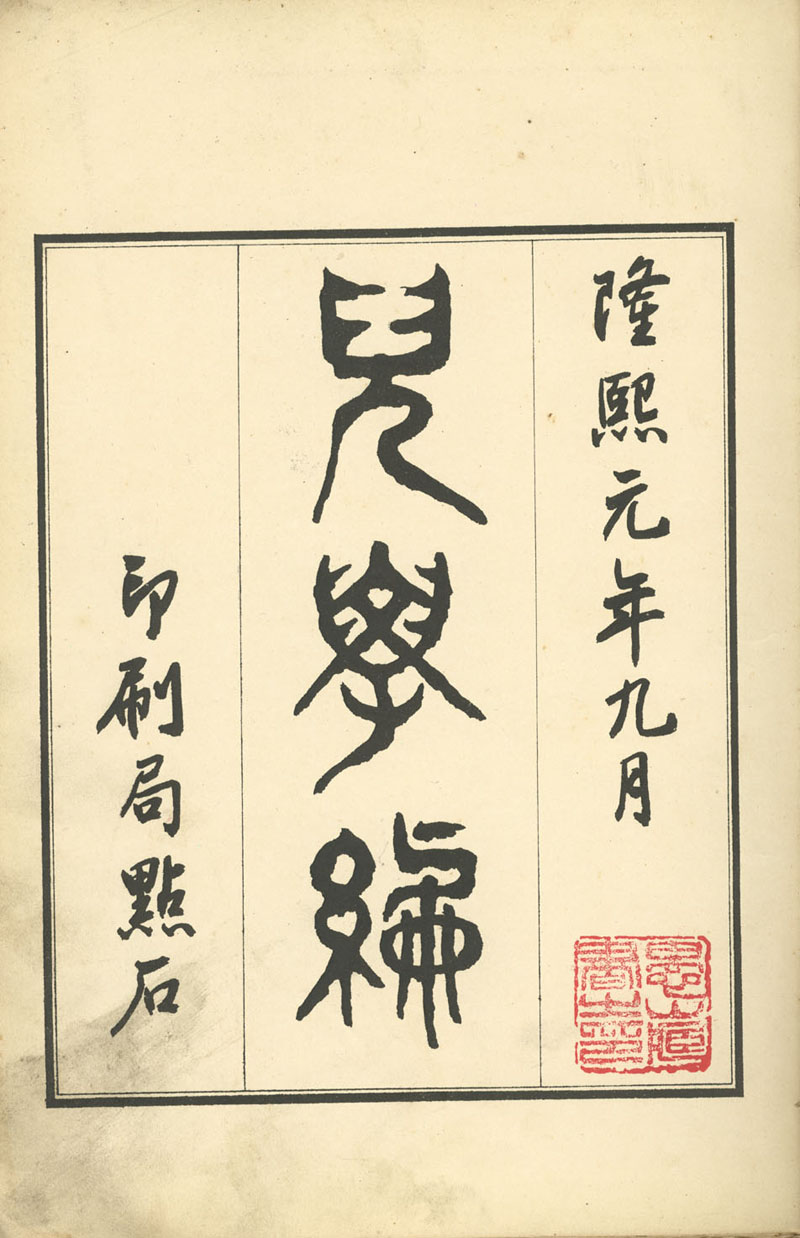 隆熙元年九月
兒學編
印刷局點石